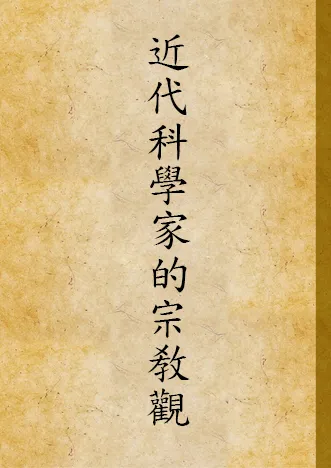 近代科學家的宗教觀